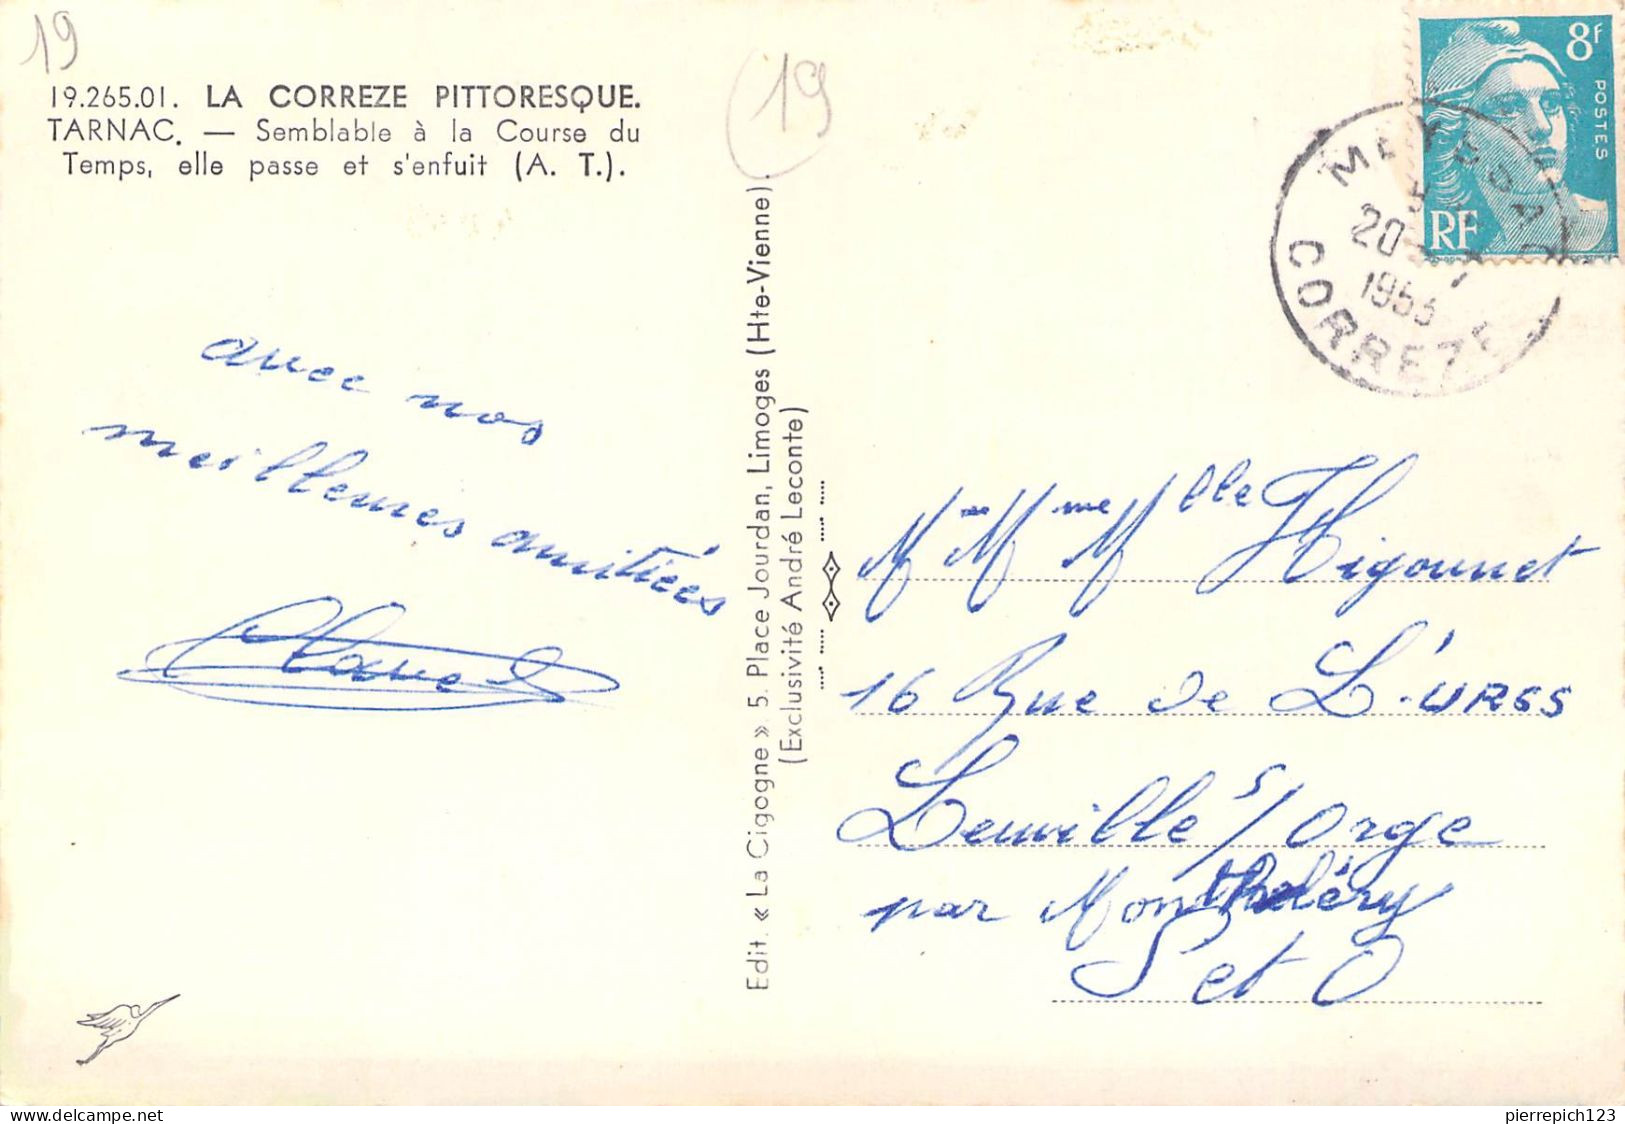 19
19.265.01. LA CORREZE PITTORESQUE.
TARNAC. — Semblable à la Course du
Temps, elle passe et s'enfuit (A. T.).
avec nos
meilleures amitiées
Edit. « La Cigogne » 5. Place Jourdan, Limoges (Hte-Vienne).
(Exclusivité André Leconte)
(19)
8F
POSTES
RF
20 - 7
1953
CORREZE
Mr Mme Mlle Higounet
16 Rue de L'URSS
Leuville s/ Orge
par Montlhéry
S et O
delcampe.net
pierrepich123